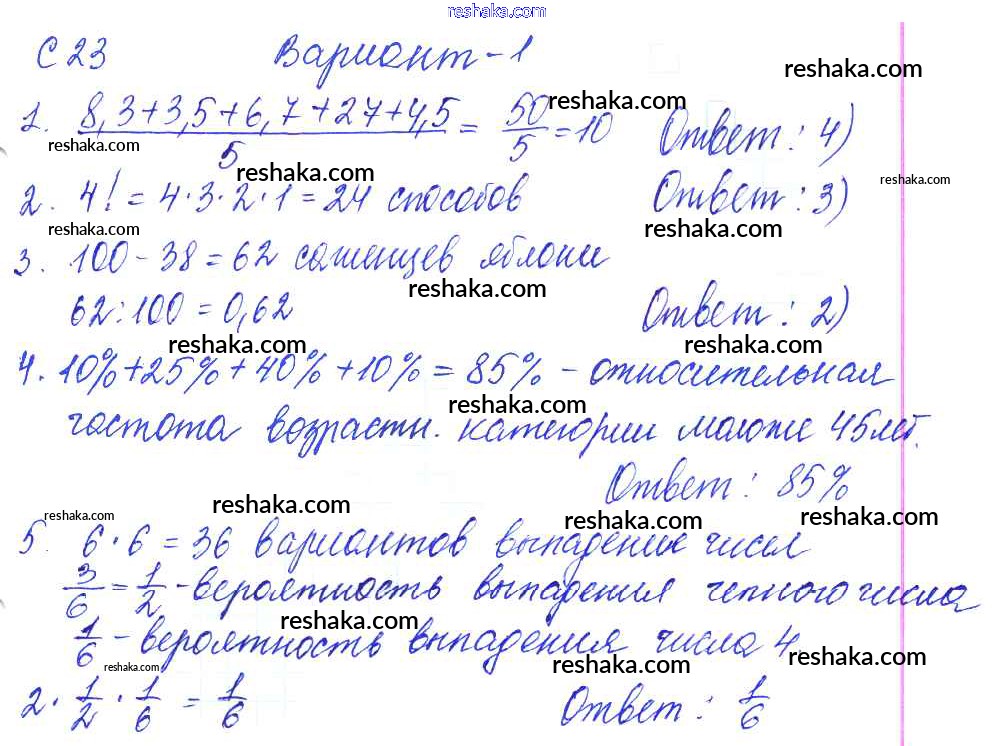 reshaka.com
С 23 Вариант-1
reshaka.com
1. 8,3+3,5+6,7+27+4,5/5 = 50/5 = 10 Ответ: 4)
reshaka.com
reshaka.com
reshaka.com
reshaka.com
2. 4! = 4·3·2·1 = 24 способов Ответ: 3)
reshaka.com
reshaka.com
3. 100-38=62 саженцев яблони
reshaka.com
62:100 = 0,62 Ответ: 2)
reshaka.com
reshaka.com
4. 10%+25%+40%+10% = 85% - относительная
reshaka.com
частота возрастн. категории моложе 45 лет.
Ответ: 85%
reshaka.com
reshaka.com
reshaka.com
reshaka.com
5. 6·6=36 вариантов выпадение чисел
3/6 = 1/2 - вероятность выпадения четного числа
reshaka.com
1/6 - вероятность выпадения числа 4.
reshaka.com
reshaka.com
reshaka.com
2·1/2·1/6 = 1/6 Ответ: 1/6